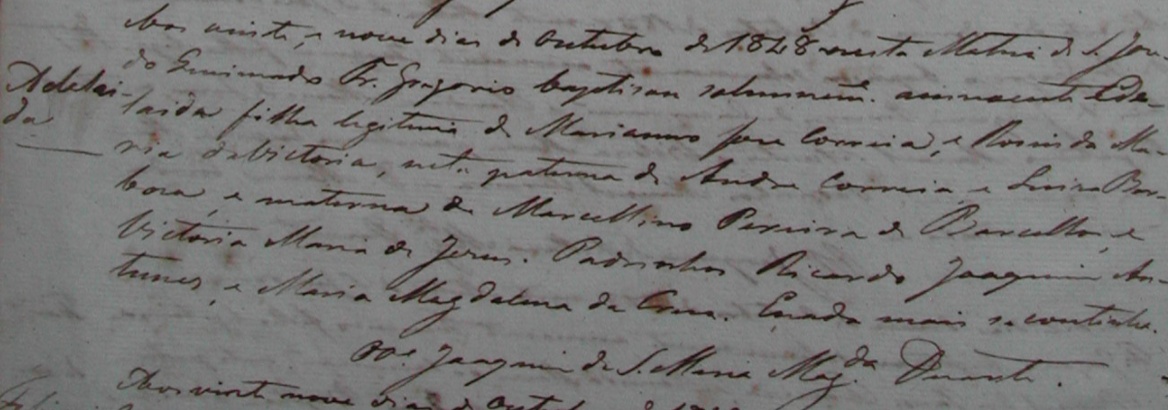 Aos vinte, e nove dias de Outubro de 1848 nesta Matriz de S. Jo-
Adelai-
da
o Fr. Gregorio baptisou solemnem. a innocente Ade-
laida filha legitima de Marianno Jose Correia, e Rosinda Ma-
ria da Victoria, neta paterna de Andre Correia e Luiza Bar-
boza, e materna de Marcellino Pereira de Barcellos, e
Victoria Maria de Jesus. Padrinhos Ricardo Joaquim An-
tunes, e Maria Magdalena da Cruz. E nada mais se continha.
Joaquim de S. Maria Mag.da Duarte.
Aos vinte nove dias de Outubro de